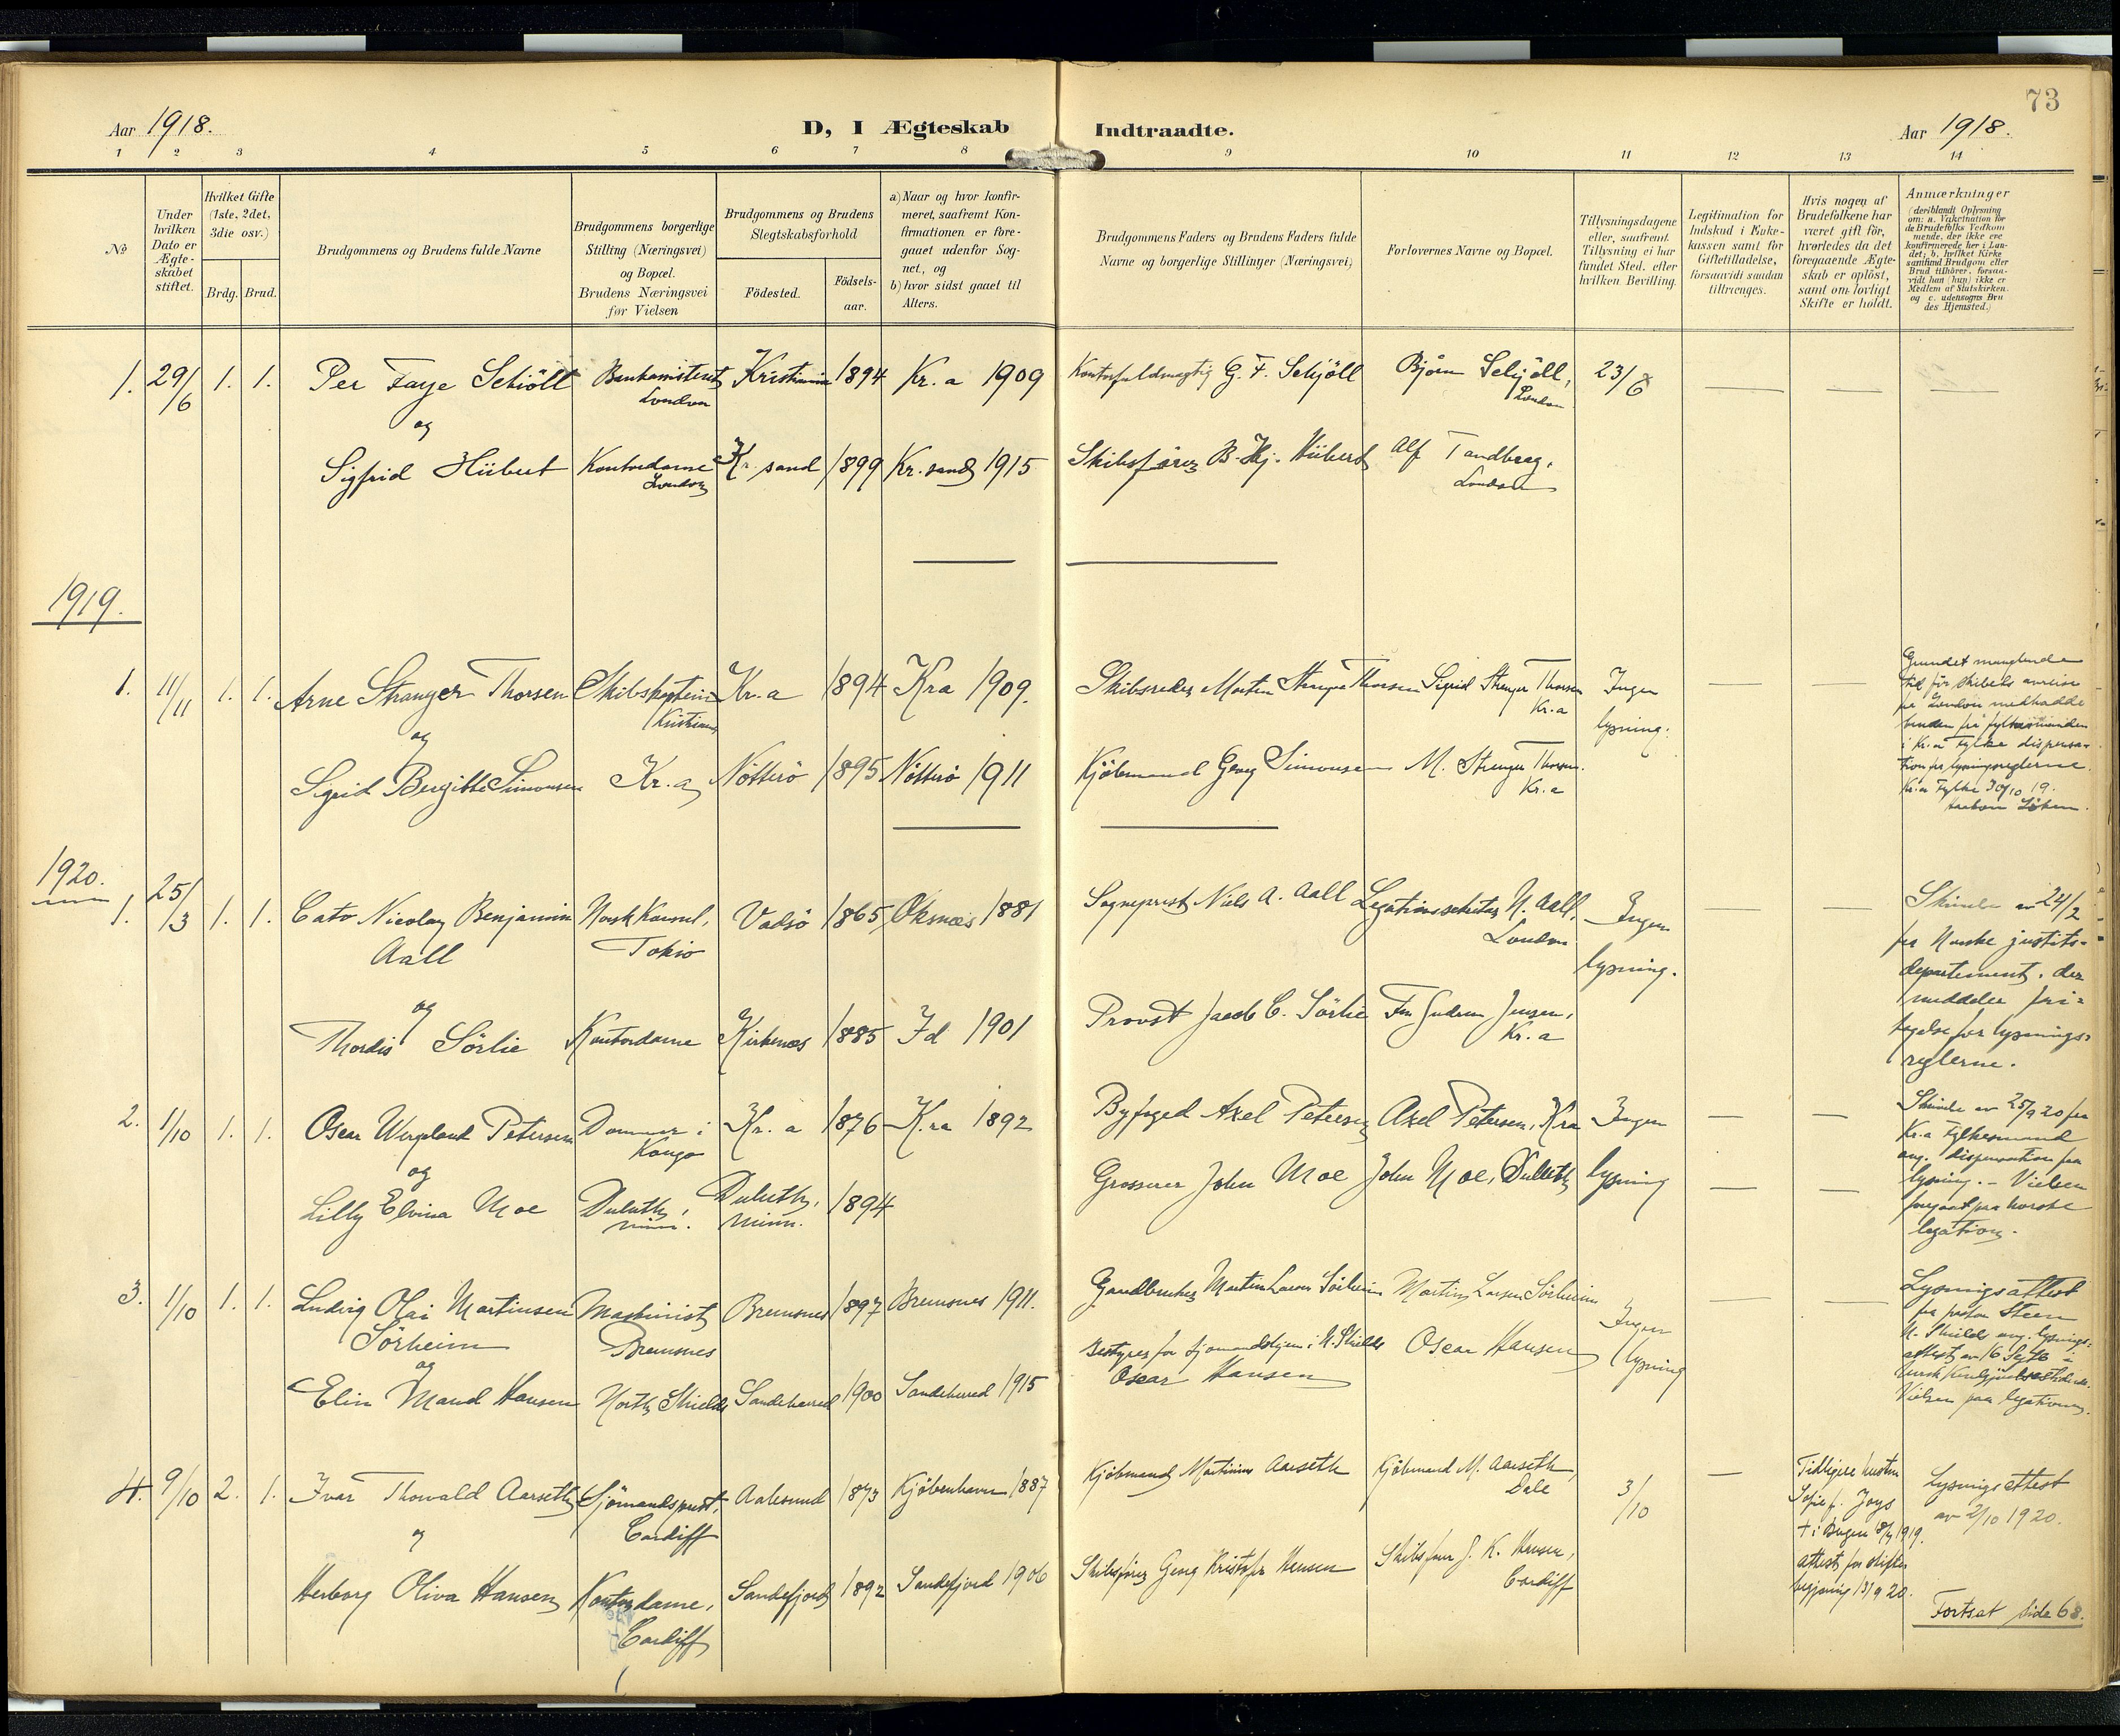 73
Aar 1918.
D, I Ægteskab Indtraadte.
Aar 1918.
1 2 3 4 5 6 7 8 9 10 11 12 13 14
No
Under hvilken Dato er Ægteskabet stiftet.
Hvilket Gifte (1ste, 2det, 3die osv.)
Brdg. Brud.
Brudgommens og Brudens fulde Navne
Brudgommens borgerlige Stilling (Næringsvei) og Bopæl. Brudens Næringsvei før Vielsen
Brudgommens og Brudens Slegtskabsforhold
Födested.
Födsels-aar.
a) Naar og hvor konfirmeret, saafremt Konfirmationen er foregaaet udenfor Sognet, og
b) hvor sidst gaaet til Alters.
Brudgommens Faders og Brudens Faders fulde Navne og borgerlige Stillinger (Næringsvei)
Forlovernes Navne og Bopæl.
Tillysningsdagene eller, saafremt Tillysning ei har fundet Sted, efter hvilken Bevilling.
Legitimation for Indskud i Enkekassen samt for Giftetilladelse, forsaavidt saadan tiltrænges.
Hvis nogen af Brudefolkene har været gift för, hvorledes da det foregaaende Ægteskab er oplöst, samt om lovligt Skifte er holdt.
Anmærkninger
(deriblandt Oplysning om: a. Vakcination for de Brudefolks Vedkommende, der ikke ere konfirmerede her i Landet; b. hvilket Kirkesamfund Brudgom eller Brud tilhörer, forsaavidt han (hun) ikke er Medlem af Statskirken. og c. udensogns Brudes Hjemsted.)
1. 29/6 1. 1. Per Faye Schiöll Kristiania 1894 Kr.a 1909 G. F. Schjöll Bjørn Schjöll, London 23/6
London
og
Sigfrid Hübert Kontordame London Kr.sand 1899 Kr.sand 1915 Skibsförer B. Hj. Hübert Alf Tandberg, London
1919.
1. 11/11 1. 1. Arne Stranger Thorsen Skibskaptein Kristiania Kr.a 1894 Kra 1909. Skibsreder Morten Stranger Thorsen Sigrid Stranger Thorsen Kr.a Ingen lysning.
og
Sigrid Bergitte Simonsen Kr.a Nötterö 1895 Nötterö 1911 Kjöbmand Georg Simonsen M. Stranger Thorsen. Kr.a
Grundet manglende
tid för skibets avreise
fra London medhadde
bruden fra fylkesmanden
i Kr.a Fylke dispensa-
tion fra lysningsreglerne.
Kr.a Fylke 30/10 19.
1920.
1. 25/3 1. 1. Cato Nicolay Benjamin Aall Norsk Konsul, Tokio Vadsö 1865 Öksnæs 1881 Sogneprest Niels A. Aall Legationssekretær N. Aall, London Ingen lysning.
og
Thordis Sörlie Kontordame Kirkenæs 1885 Id 1901 Provst Jacob C. Sörlie Frk Gudrun Jensen, Kr.a
Skrivelse av 24/2
fra Norske justits-
departement, der
meddeler fri-
tagelse for lysnings-
reglerne.
2. 1/10 1. 1. Oscar Wergeland Petersen Dommer i Kongo Kr.a 1876 K.ra 1892 Byfoged Axel Petersen Axel Petersen, Kra Ingen lysning
og
Lilly Elvina Moe Duluth, Minn. Duluth, Minn. 1894 Grosserer John Moe John Moe, Duluth
Skrivelse av 25/9 20 fra
Kr.a Fylkesmand
ang. dispensation fra
lysning. – Vielsen
foregaat paa norske
legation.
3. 1/10 1. 1. Ludvig Olai Martinsen Sörheim Maskinist Bremsnes Bremsnes 1897 Bremsnes 1911. Gaardbruker Martin Larsen Sörheim Martin Larsen Sörheim Ingen lysning
og
Elin Maud Hansen North Shields Sandeherred 1900 Sandeherred 1915 Bestyrer for sjömandshjem i N. Shields Oscar Hansen Oscar Hansen
Lysningsattest
fra pastor Steen
N. Shields ang. lysnings-
attest av 16 Sept.
Vielsen paa legationen.
4. 9/10 2. 1. Ivar Thorvald Aarseth Sjömandsprest, Cardiff Aalesund 1873 Kjöbenhavn 1887 Kjöbmand Martinus Aarseth Kjöbmand M. Aarseth, Dale 3/10
og
Herborg Oliva Hansen Kontordame, Cardiff Sandefjord 1892 Sandefjord 1906 Skibsförer Georg Kristofer Hansen Skibsförer J. K. Hansen, Cardiff
Tidligere hustru
Sofie f. Joys
† i Bergen 1919.
attest for skifte
Lysningsattest
av 2/10 1920.
Fortsat side 68.